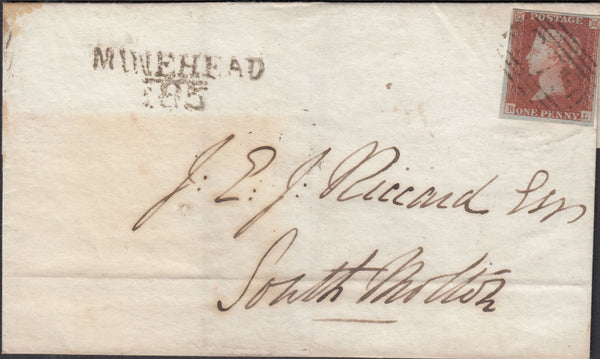 MINEHEAD
185
POSTAGE
B ONE PENNY
J: E: J: Riccard Esqr
South Molton